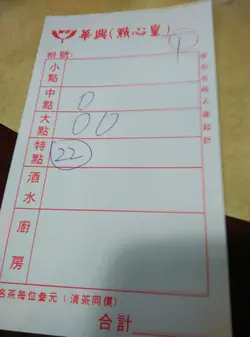 華興(點心皇)
枱號:
小點
中點 0
大點 00
特點 22
酒水
廚房
名茶每位叁元(清茶同價)
合計